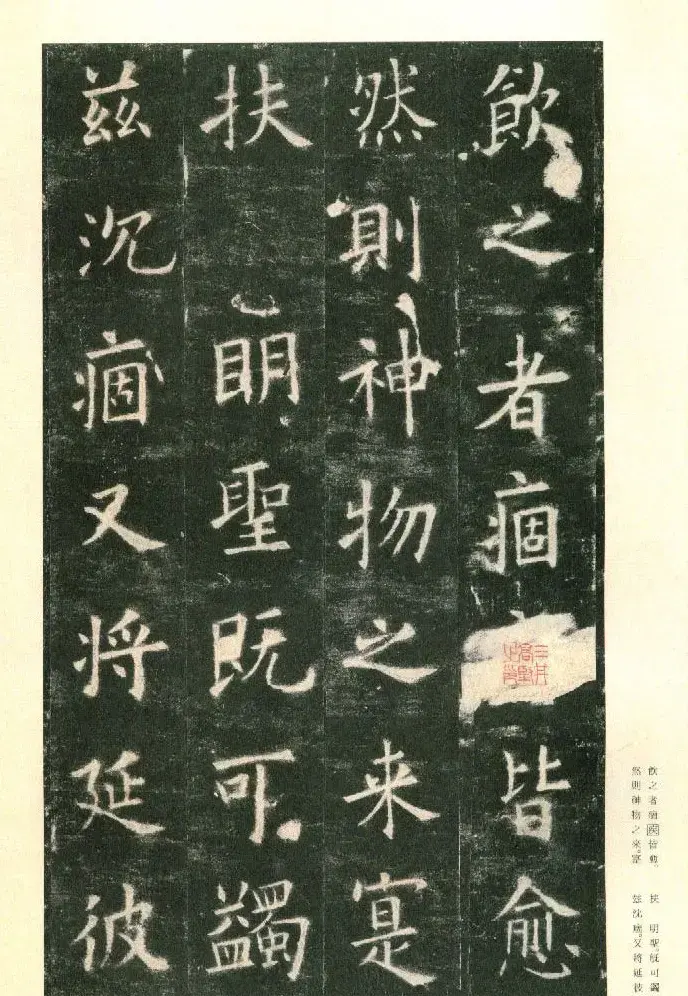 飲之者痼皆愈
然則神物之来寔
扶 眀聖既可蠲
兹沉痼又将延彼
飲之者痼疾皆愈。
然則神物之來。寔
扶 明聖。既可蠲
兹沈痼。又將延彼